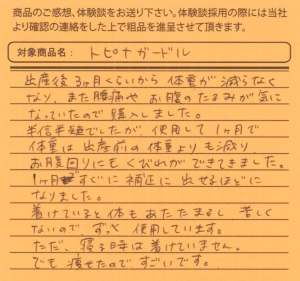 商品のご感想、体験談をお送り下さい。体験談採用の際には当社
より確認の連絡をした上で粗品を進呈させて頂きます。
対象商品名: トピナガードル
出産後3ヶ月くらいから体重が減らなく
なり、また腰痛やお腹のたるみが気に
なっていたので購入しました。
半信半疑でしたが、使用して1ヶ月で
体重は出産前の体重よりも減り
お腹回りにもくびれができてきました。
1ヶ月ですぐに補正に出せるほどに
なりました。
着けていると体もあたたまるし苦しく
ないので、ずっと使用しています。
ただ、寝る時は着けていません。
でも痩せたので、すごいです。